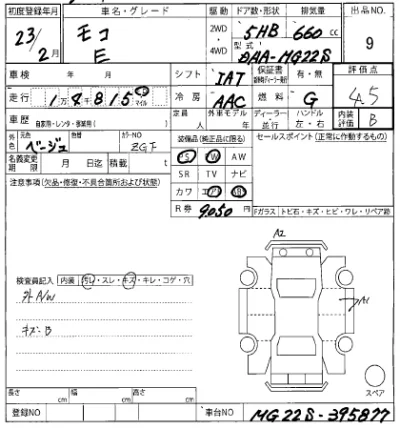 初度登録年月 車名・グレード 駆動 ドア数・形状 排気量 出品NO.
23/2月 モコ E 2WD・4WD 5HB 660cc 9
型式 DAA-MG22S
車検 年 月 シフト IAT 保証書 有・無 評価点
走行 1万4815 マイル 冷房 AAC 燃料 G 4.5
車歴 自家用・レンタ・事業用( ) 定員 人 外車モデル 年 ディーラー・並行 ハンドル 左・右 内装評価 B
外色 元色 ベージュ 色替 カラーNO ZGF 装備品(純正品に限る) セールスポイント(正常に作動するもの)
PS PW AW
名義変更期限 月 日迄 積載 t SR TV ナビ
注意事項(欠品・修復・不具合箇所および状態) カワ エアB ABS
R券 9050円 Fガラス トビ石・キズ・ヒビ・ワレ・リペア跡
A2
検査員記入 内装 汚レ・スレ・キズ・キレ・コゲ・穴
外A/W
A1
キズ:B
スペア
長さ cm 幅 cm 高さ cm
登録NO 車台NO MG22S-395877